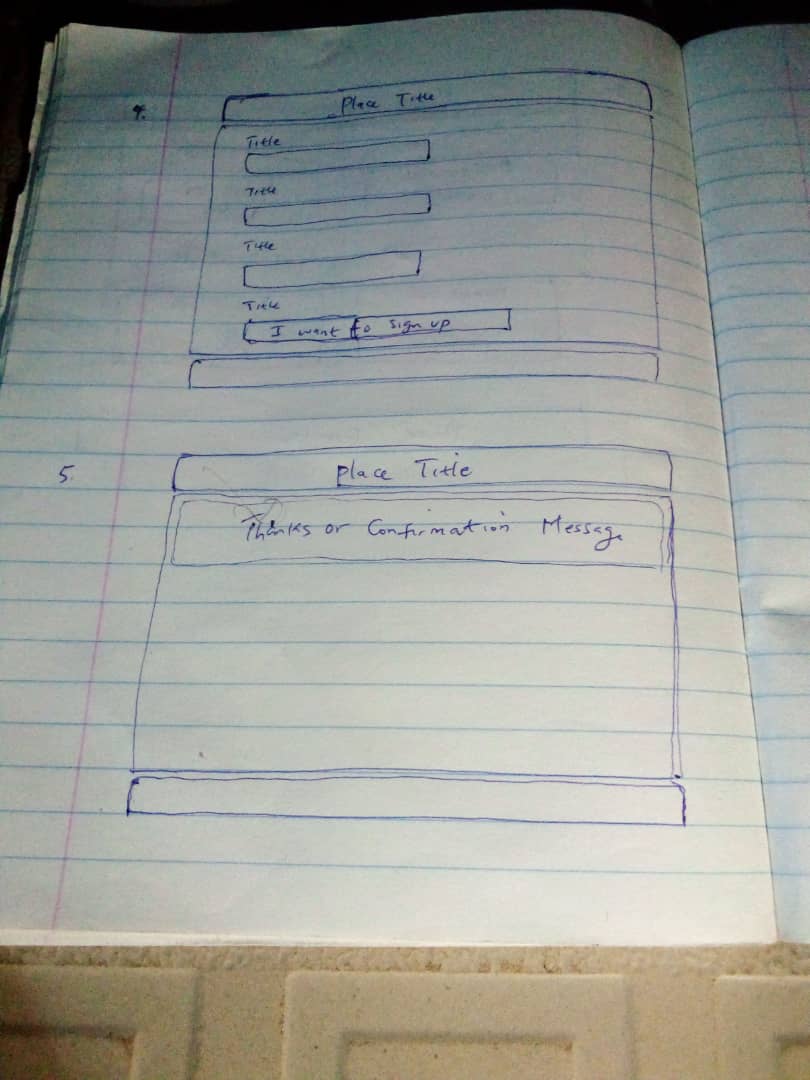 4.
Place Title
Title
Title
Title
Title
I want to sign up
5.
Place Title
Thanks or Confirmation Message